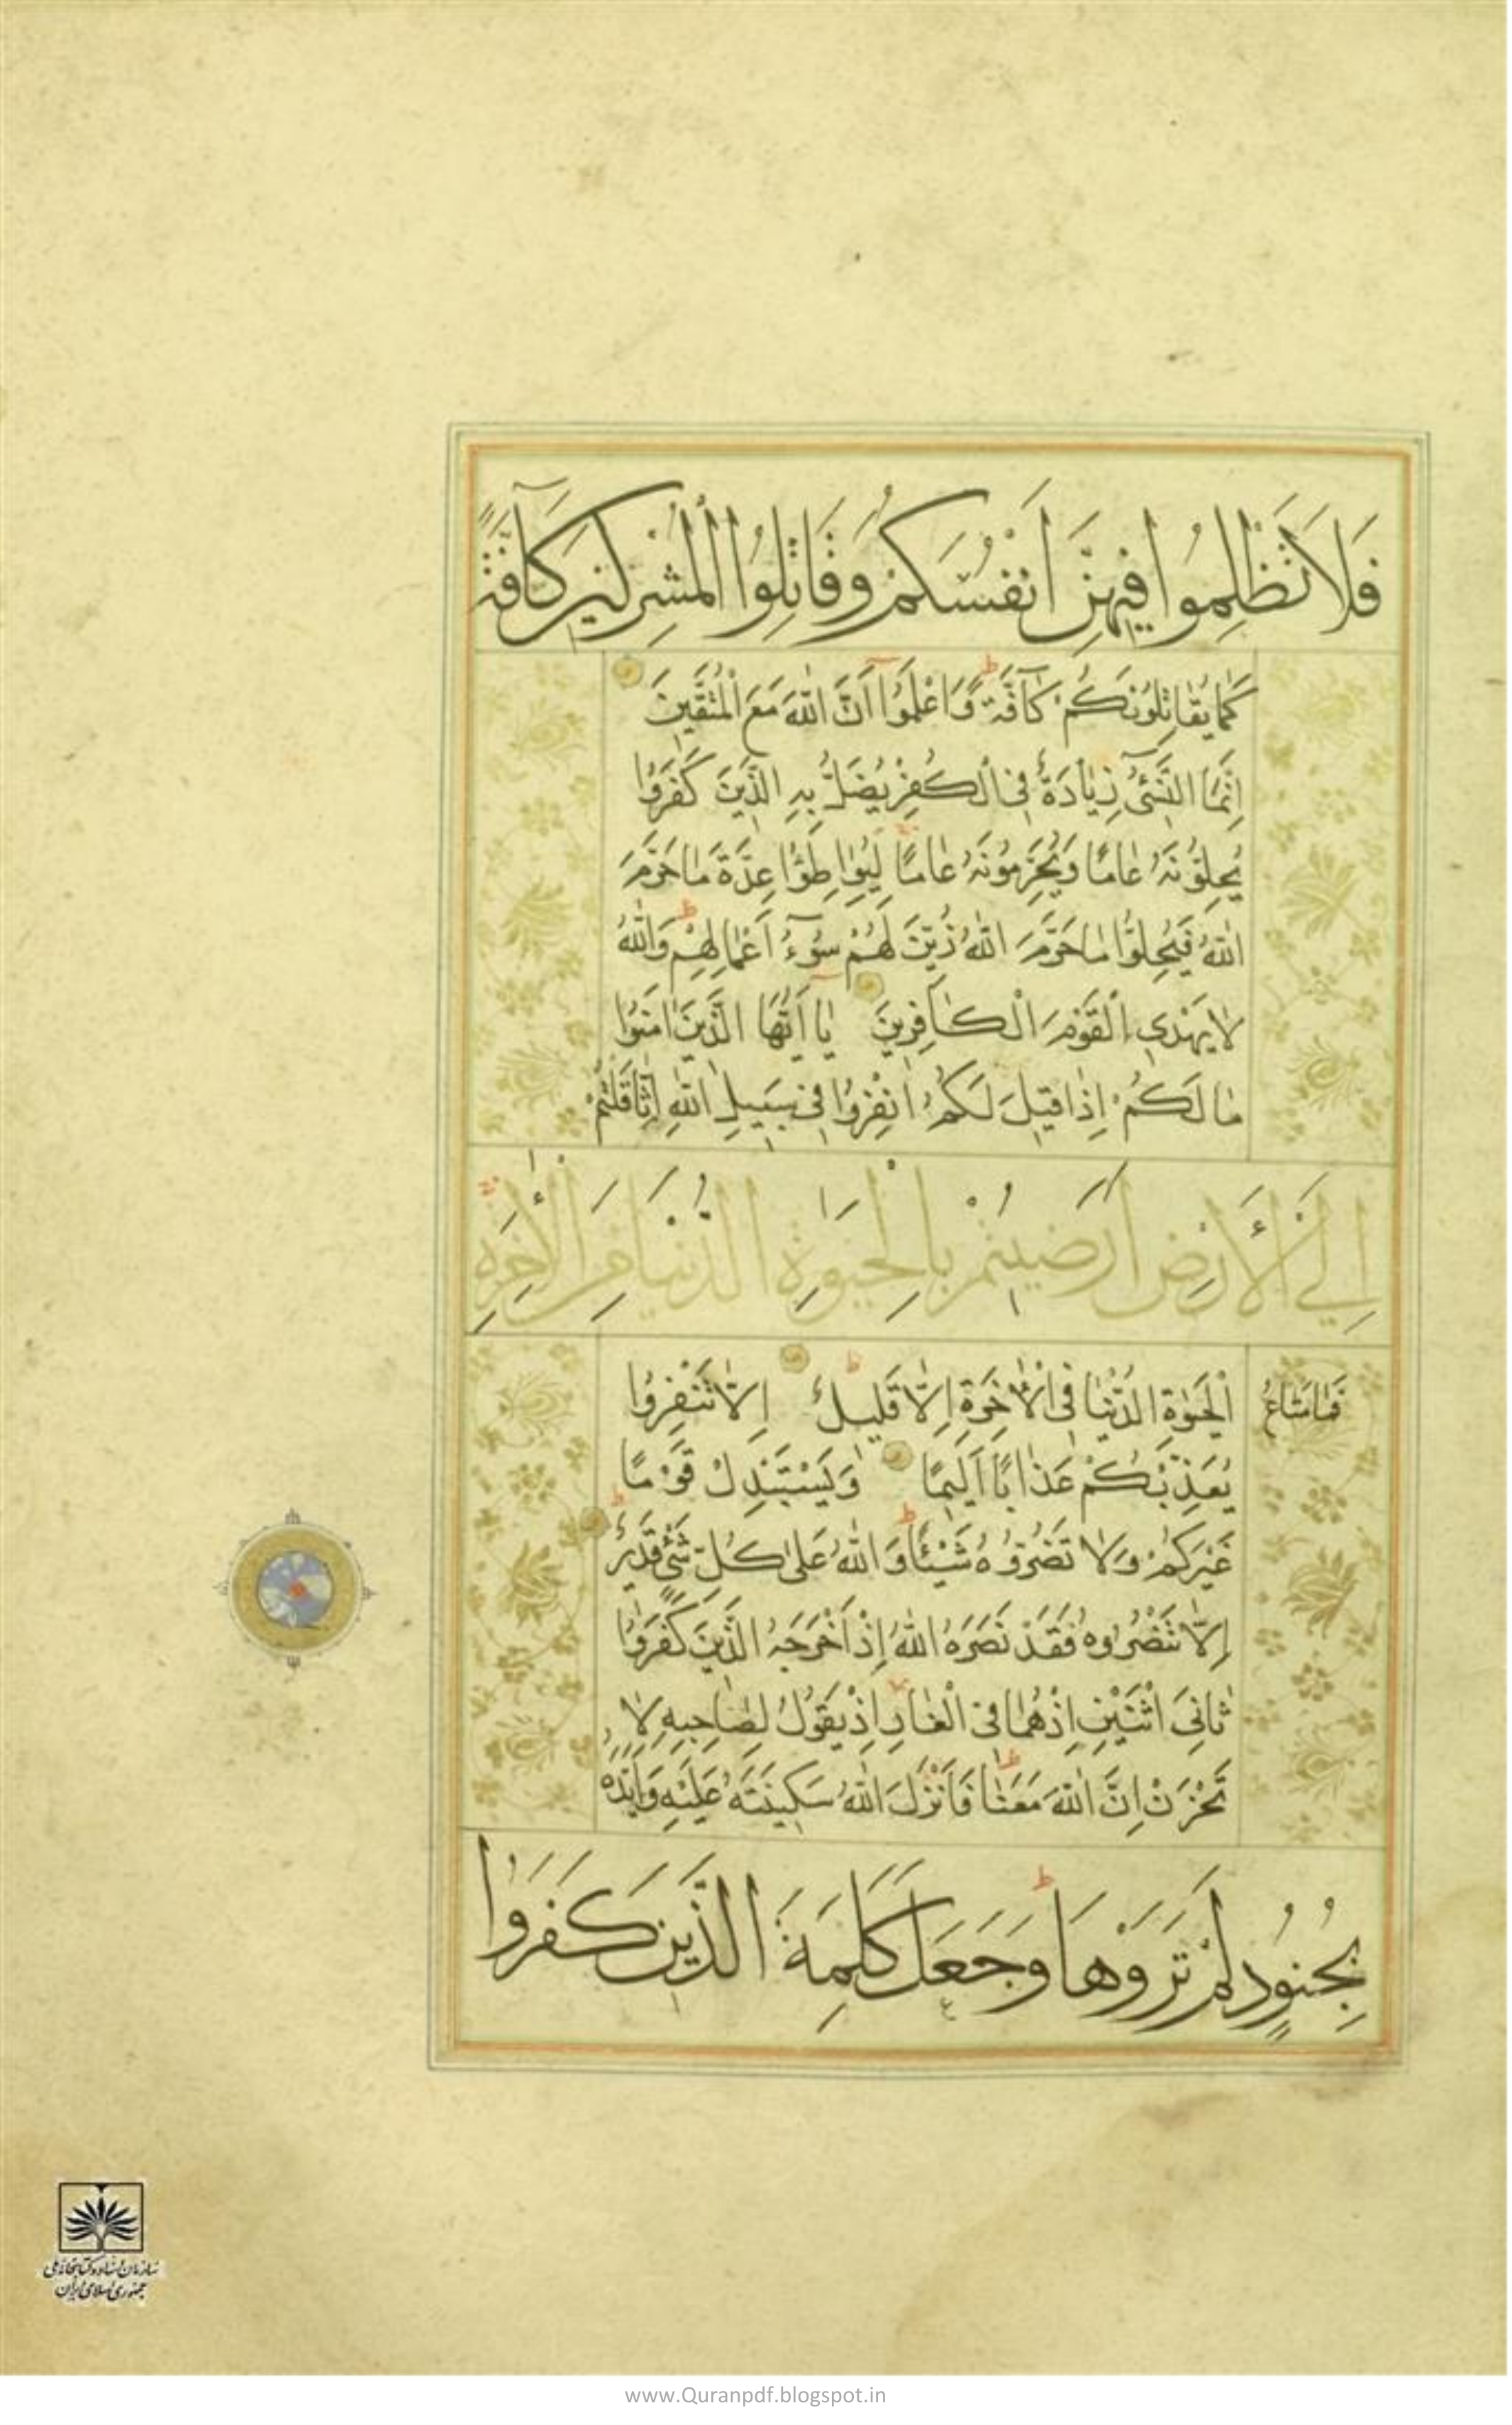 فَلَا تَظْلِمُوا فِيهِنَّ أَنْفُسَكُمْ وَقَاتِلُوا الْمُشْرِكِينَ كَآفَّةً
كَمَا يُقَاتِلُونَكُمْ كَآفَّةً وَاعْلَمُوا أَنَّ اللّٰهَ مَعَ الْمُتَّقِينَ
إِنَّمَا النَّسِيءُ زِيَادَةٌ فِي الْكُفْرِ يُضَلُّ بِهِ الَّذِينَ كَفَرُوا
يُحِلُّونَهُ عَامًا وَيُحَرِّمُونَهُ عَامًا لِيُوَاطِؤُا عِدَّةَ مَا حَرَّمَ
اللّٰهُ فَيُحِلُّوا مَا حَرَّمَ اللّٰهُ زُيِّنَ لَهُمْ سُوٓءُ أَعْمَالِهِمْ وَاللّٰهُ
لَا يَهْدِي الْقَوْمَ الْكَافِرِينَ يَا أَيُّهَا الَّذِينَ اٰمَنُوا
مَا لَكُمْ إِذَا قِيلَ لَكُمُ انْفِرُوا فِي سَبِيلِ اللّٰهِ اثَّاقَلْتُمْ
إِلَى الْأَرْضِ أَرَضِيتُمْ بِالْحَيٰوةِ الدُّنْيَا مِنَ الْاٰخِرَةِ
فَمَا مَتَاعُ الْحَيٰوةِ الدُّنْيَا فِي الْاٰخِرَةِ إِلَّا قَلِيلٌ إِلَّا تَنْفِرُوا
يُعَذِّبْكُمْ عَذَابًا أَلِيمًا وَيَسْتَبْدِلْ قَوْمًا
غَيْرَكُمْ وَلَا تَضُرُّوهُ شَيْئًا وَاللّٰهُ عَلٰى كُلِّ شَيْءٍ قَدِيرٌ
إِلَّا تَنْصُرُوهُ فَقَدْ نَصَرَهُ اللّٰهُ إِذْ أَخْرَجَهُ الَّذِينَ كَفَرُوا
ثَانِيَ اثْنَيْنِ إِذْ هُمَا فِي الْغَارِ إِذْ يَقُولُ لِصَاحِبِهِ لَا
تَحْزَنْ إِنَّ اللّٰهَ مَعَنَا فَأَنْزَلَ اللّٰهُ سَكِينَتَهُ عَلَيْهِ وَأَيَّدَهُ
بِجُنُودٍ لَمْ تَرَوْهَا وَجَعَلَ كَلِمَةَ الَّذِينَ كَفَرُوا
سازمان اسناد و کتابخانه ملی
جمهوری اسلامی ایران
www.Quranpdf.blogspot.in